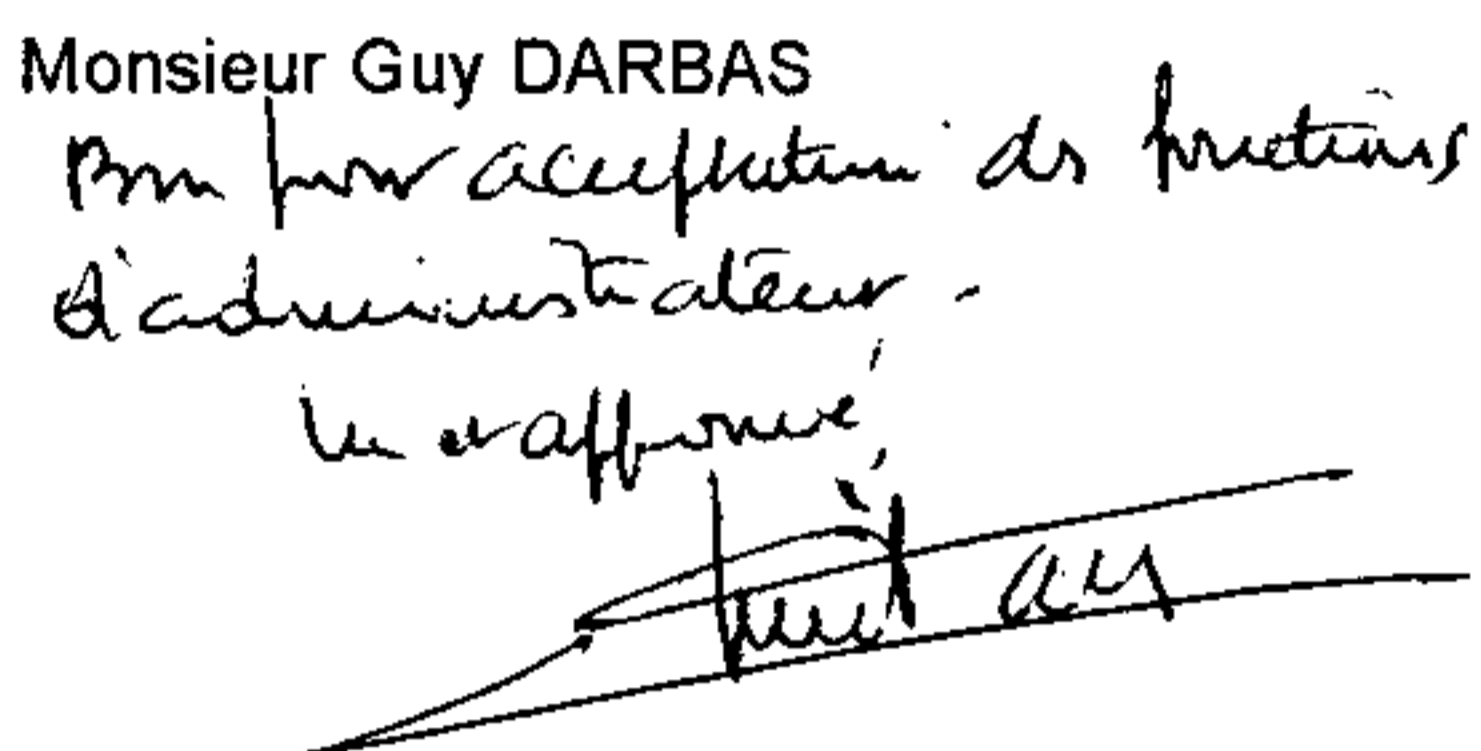 Monsieur Guy DARBAS
Bon pour acceptation des fonctions
d'administrateur -
Lu et approuvé